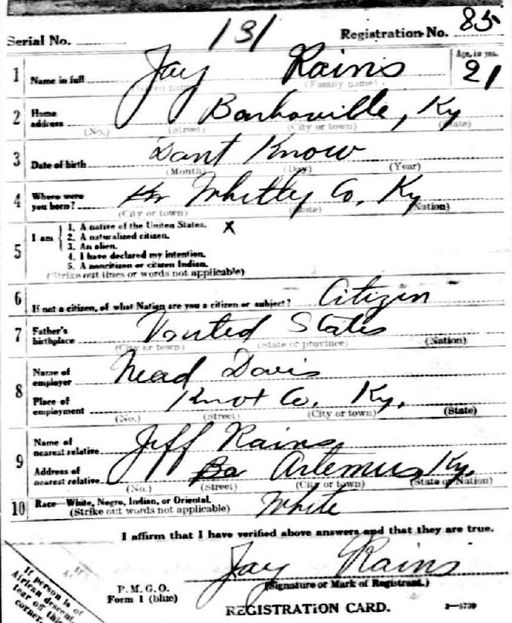 Serial No. 131 Registration No. 85
1 Name in full Jay Rains Age, in yrs. 21
(Given name) (Family name)
2 Home address Barboville, Ky
(No.) (Street) (City or town) (State)
3 Date of birth Dont Know
(Month) (Day) (Year)
4 Where were you born? Whitly Co, Ky
(City or town) (State) (Nation)
5 I am
1. A native of the United States. X
2. A naturalized citizen.
3. An alien.
4. I have declared my intention.
5. A noncitizen or citizen Indian.
(Strike out lines or words not applicable)
6 If not a citizen, of what Nation are you a citizen or subject? Citizen
7 Father's birthplace United States
(City or town) (State or province) (Nation)
8 Name of employer Nead Davis
Place of employment Knox Co, Ky.
(No.) (Street) (City or town) (State)
9 Name of nearest relative Jeff Rains
Address of nearest relative Ba Artemus, Ky.
(No.) (Street) (City or town) (State or Nation)
10 Race—White, Negro, Indian, or Oriental. White
(Strike out words not applicable)
I affirm that I have verified above answers and that they are true.
Jay Rains
(Signature or Mark of Registrant.)
P.M.G.O.
Form 1 (blue)
REGISTRATION CARD.
If person is of
African descent,
tear off this
corner.